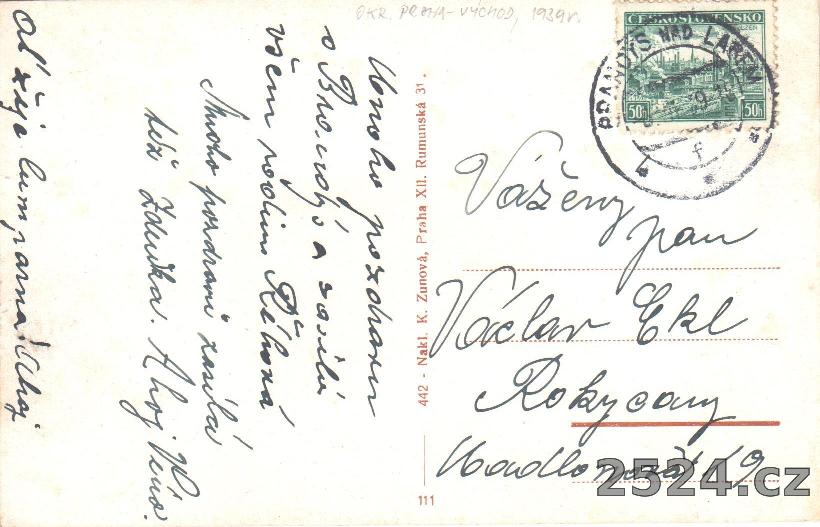 OKR. PRAHA-VÝCHOD, 1939r.
ČESKOSLOVENSKO
PLZEŇ
50h 50h
BRANDÝS NAD LABEM
f
Mnoho pozdravu
z Brandýsa zasílá
všem rodina Říhová
Mnoho pozdravů zasílá
též Zdenka. Ahoj
Ať žije
Ahoj
442 - Nakl. K. Zunová, Praha XII. Rumunská 31.
111
Vážený
pan
Václav Ekl
Rokycany
19
2524.cz